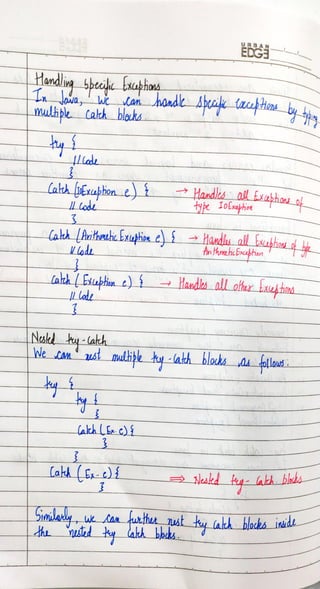 URBAN
EDGE
Handling Specific Exceptions
In Java, we can handle specific exceptions by typing
multiple catch blocks.
try {
// Code
}
Catch (IOException e) { → Handles all Exceptions of
// Code type IOException
}
Catch (Arithmetic Exception e) { → Handles all Exceptions of type
// Code ArithmeticException
}
Catch (Exception e) { → Handles all other Exceptions
// Code
}
Nested try-catch
We can nest multiple try-catch blocks as follows.
try {
try {
}
Catch (Ex- e) {
}
}
Catch (Ex- e) { ⇒ Nested try-catch blocks
}
Similarly, we can further nest try catch blocks inside
the nested try catch blocks.